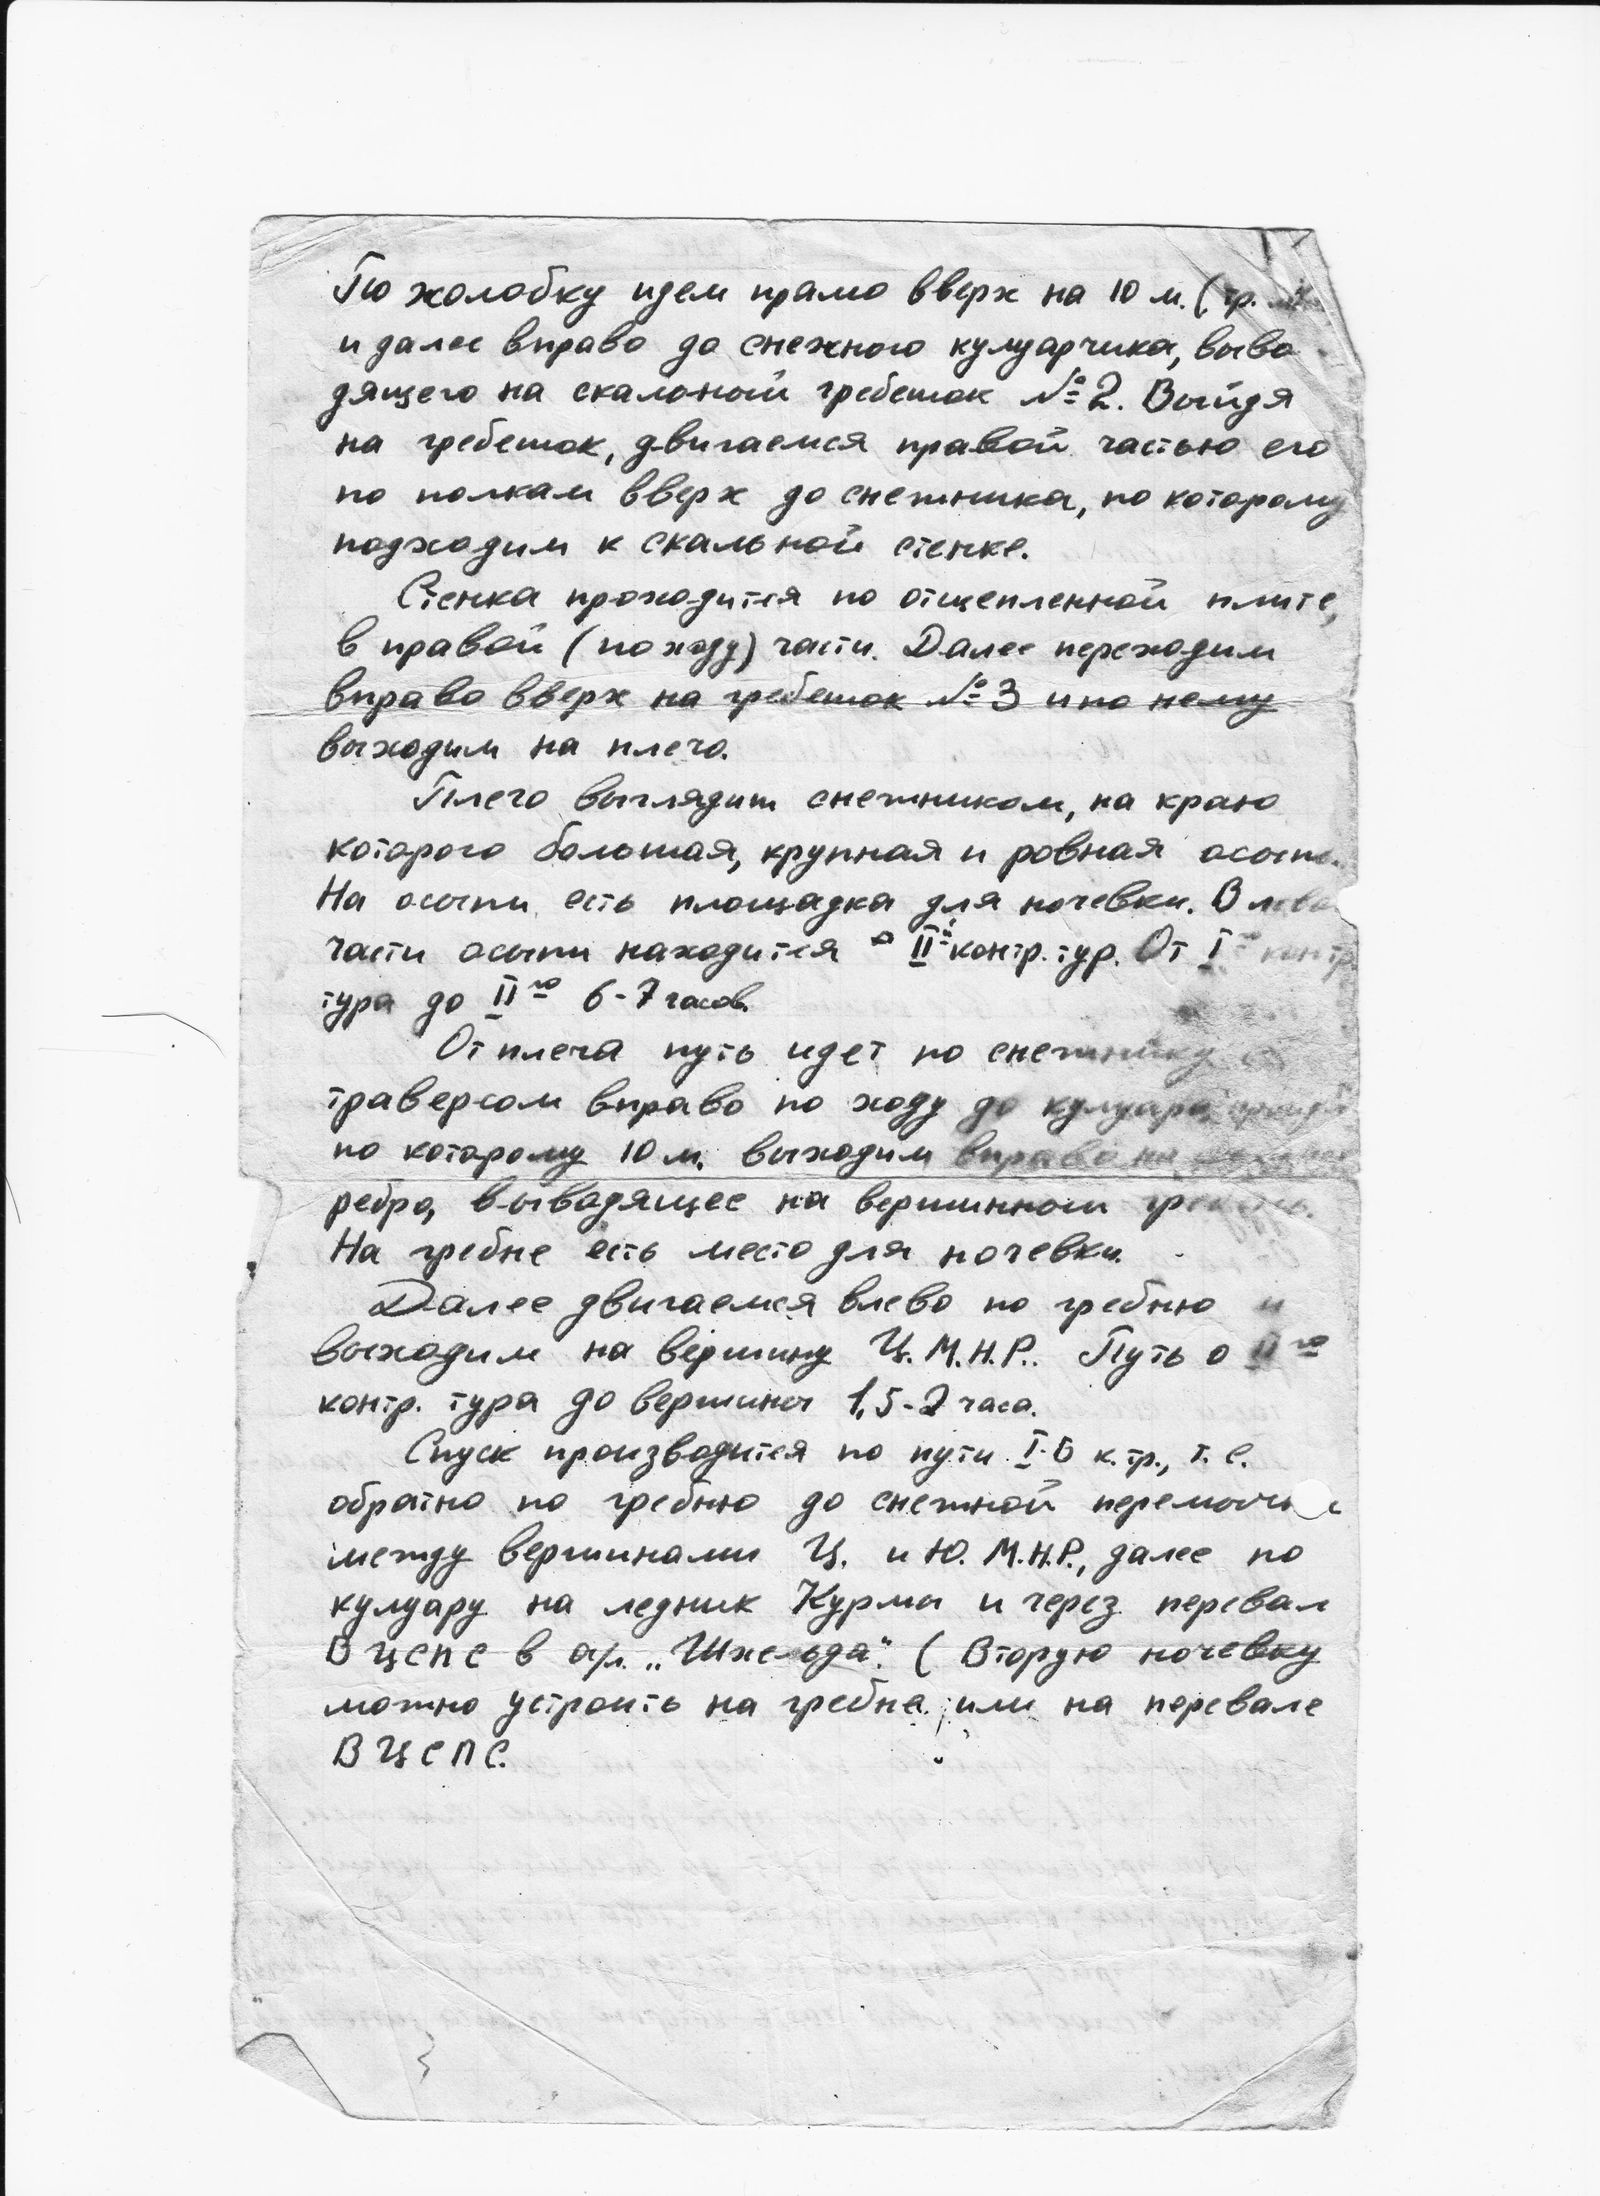 По жолобку идем прямо вверх на 10 м. (тр.
и далее вправо до снежного кулуарчика, выво
дящего на скальный гребешок №2. Выйдя
на гребешок, двигаемся правой частью его
по полкам вверх до снежника, по которому
подходим к скальной стенке.
Стенка проходится по отщепленной плите,
в правой (по ходу) части. Далее переходим
вправо вверх на гребешок №3 и по нему
выходим на плечо.
Плечо выглядит снежником, на краю
которого большая, крупная и ровная осыпь.
На осыпи есть площадка для ночевки. В
части осыпи находится II й контр. тур. От I го контр
тура до II го 6-7 часов.
От плеча путь идет по снежнику
траверсом вправо по ходу до кулуара,
по которому 10 м. выходим вправо на
ребро, выводящее на вершинный
На гребне есть место для ночевки.
Далее двигаемся влево по гребню и
выходим на вершину Ц.М.Н.Р.. Путь о II го
контр. тура до вершины 1,5-2 часа.
Спуск производится по пути I-Б к.тр., т.е.
обратно по гребню до снежной
между вершинами Ц. и Ю. М.Н.Р., далее по
кулуару на ледник Курмы и через перевал
ВЦСПС в а/л. „Шхельда". (Вторую ночевку
можно устроить на гребне или на перевале
ВЦСПС.